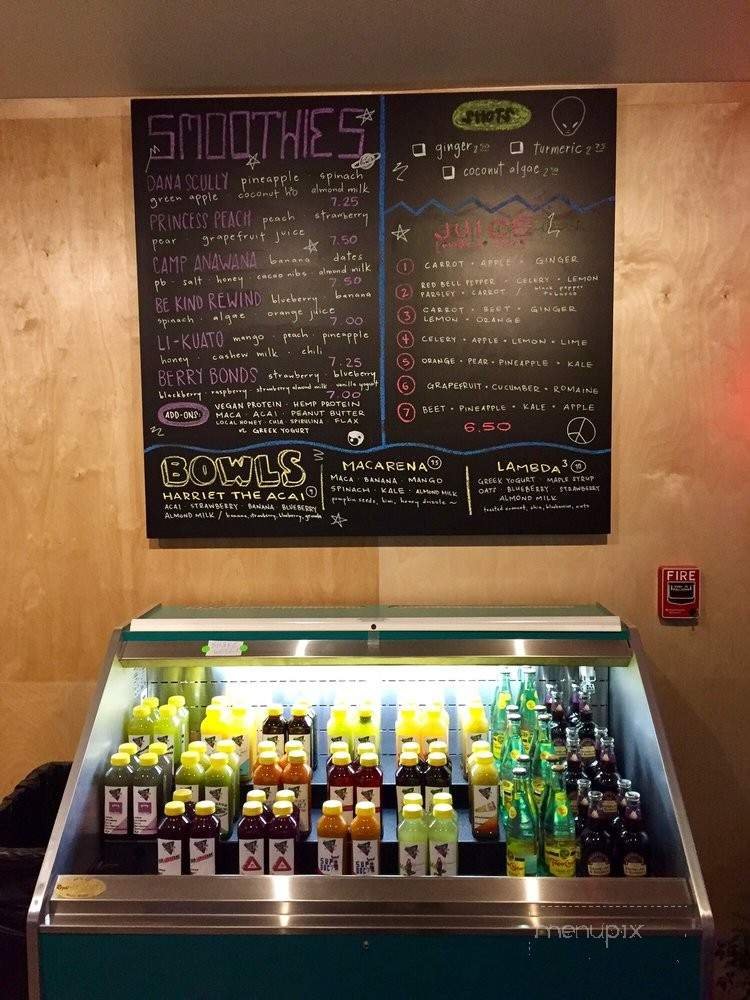 SMOOTHIES
DANA SCULLY pineapple · spinach
green apple · coconut h2o · almond milk
7.25
PRINCESS PEACH peach · strawberry
pear · grapefruit juice
7.50
CAMP ANAWANA banana · dates
pb · salt · honey · cacao nibs · almond milk
7.50
BE KIND REWIND blueberry · banana
spinach · algae · orange juice
7.00
LI-KUATO mango · peach · pineapple
honey · cashew milk · chili
7.25
BERRY BONDS strawberry · blueberry
blackberry · raspberry · strawberry almond milk · vanilla yogurt
7.00
ADD-ONS: VEGAN PROTEIN · HEMP PROTEIN
MACA · ACAI · PEANUT BUTTER
LOCAL HONEY · CHIA · SPIRULINA · FLAX
or GREEK YOGURT
SHOTS
ginger turmeric
coconut algae
JUICE
1 CARROT · APPLE · GINGER
2 RED BELL PEPPER · CELERY · LEMON
PARSLEY · CARROT / black pepper
tobasco
3 CARROT · BEET · GINGER
LEMON · ORANGE
4 CELERY · APPLE · LEMON · LIME
5 ORANGE · PEAR · PINEAPPLE · KALE
6 GRAPEFRUIT · CUCUMBER · ROMAINE
7 BEET · PINEAPPLE · KALE · APPLE
6.50
BOWLS
HARRIET THE ACAI 9
ACAI · STRAWBERRY · BANANA · BLUEBERRY
ALMOND MILK / banana, strawberry, blueberry, granola
MACARENA
MACA · BANANA · MANGO
SPINACH · KALE · ALMOND MILK
pumpkin seeds, kiwi, honey drizzle
LAMBDA3 10
GREEK YOGURT · MAPLE SYRUP
OATS · BLUEBERRY · STRAWBERRY
ALMOND MILK
toasted coconut, chia, blueberries, oats
FIRE
menupix